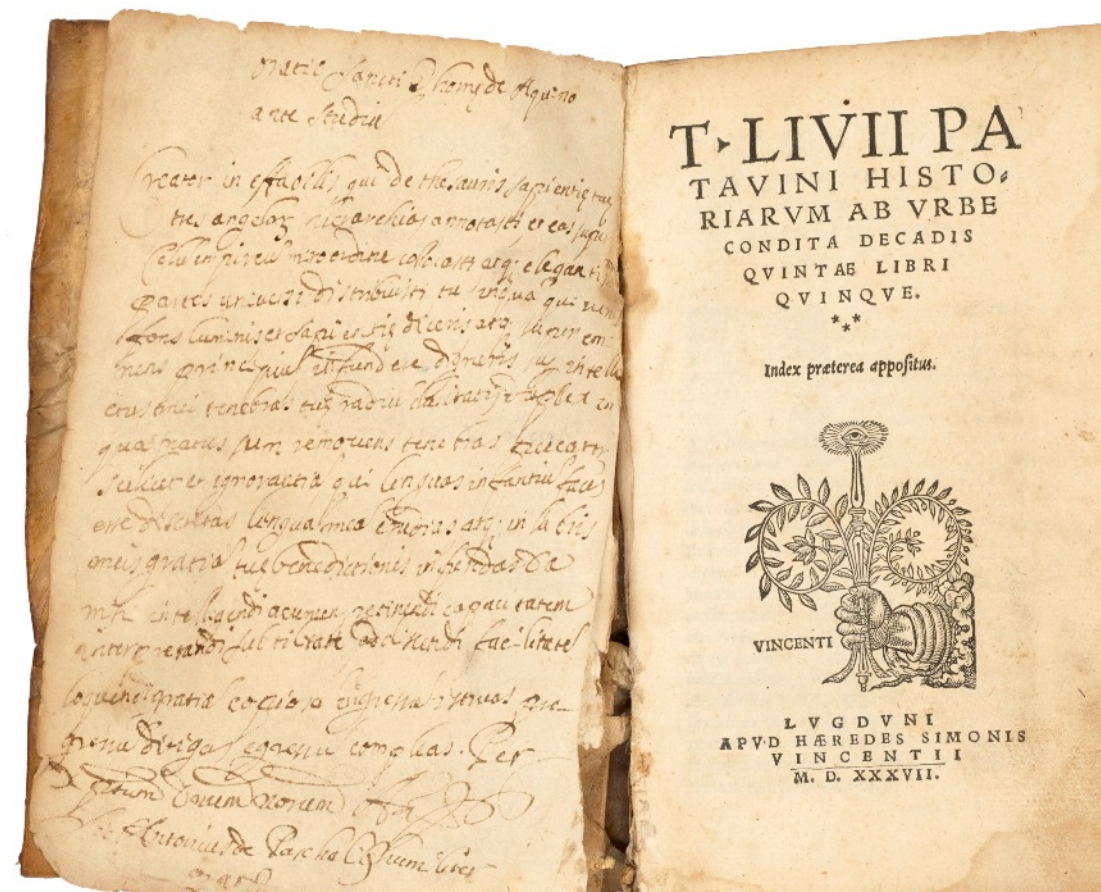 oratio Sancti Thomę de Aquino
ante studiū
Creator ineffabilis qui de thesauris sapientię tuę
tres angeloꝝ hierarchias annotasti et eas super
Celū empireū miro ordine colocasti atq; elegan
partes universi distribuisti tu inqua qui
fons luminis et sapientię diceris atq; super em
nens principiū infundere digneris sup intelle
ctus mei tenebras tuę radiū claritatis duplex in
qua natus sum removens tenebras peccatū
scilicet et ignorantiā qui linguas infantiū facis
esse disertas linguā meā erudias atq; in labiis
meis gratiā tuę benedictionis infundas Da
mihi intelligendi acumen retinendi capacitatem
interpretandi subtilitatē addiscendi facilitatē
loquendi gratiā copiosā ingressū istruas pro-
gressū dirigas egressū compleas. Per
Antonius de
T. LIVII PA
TAVINI HISTO-
RIARVM AB VRBE
CONDITA DECADIS
QVINTAE LIBRI
QVINQVE.
***
Index præterea appositus.
VINCENTI
LVGDVNI
APVD HÆREDES SIMONIS
VINCENTII
M. D. XXXVII.